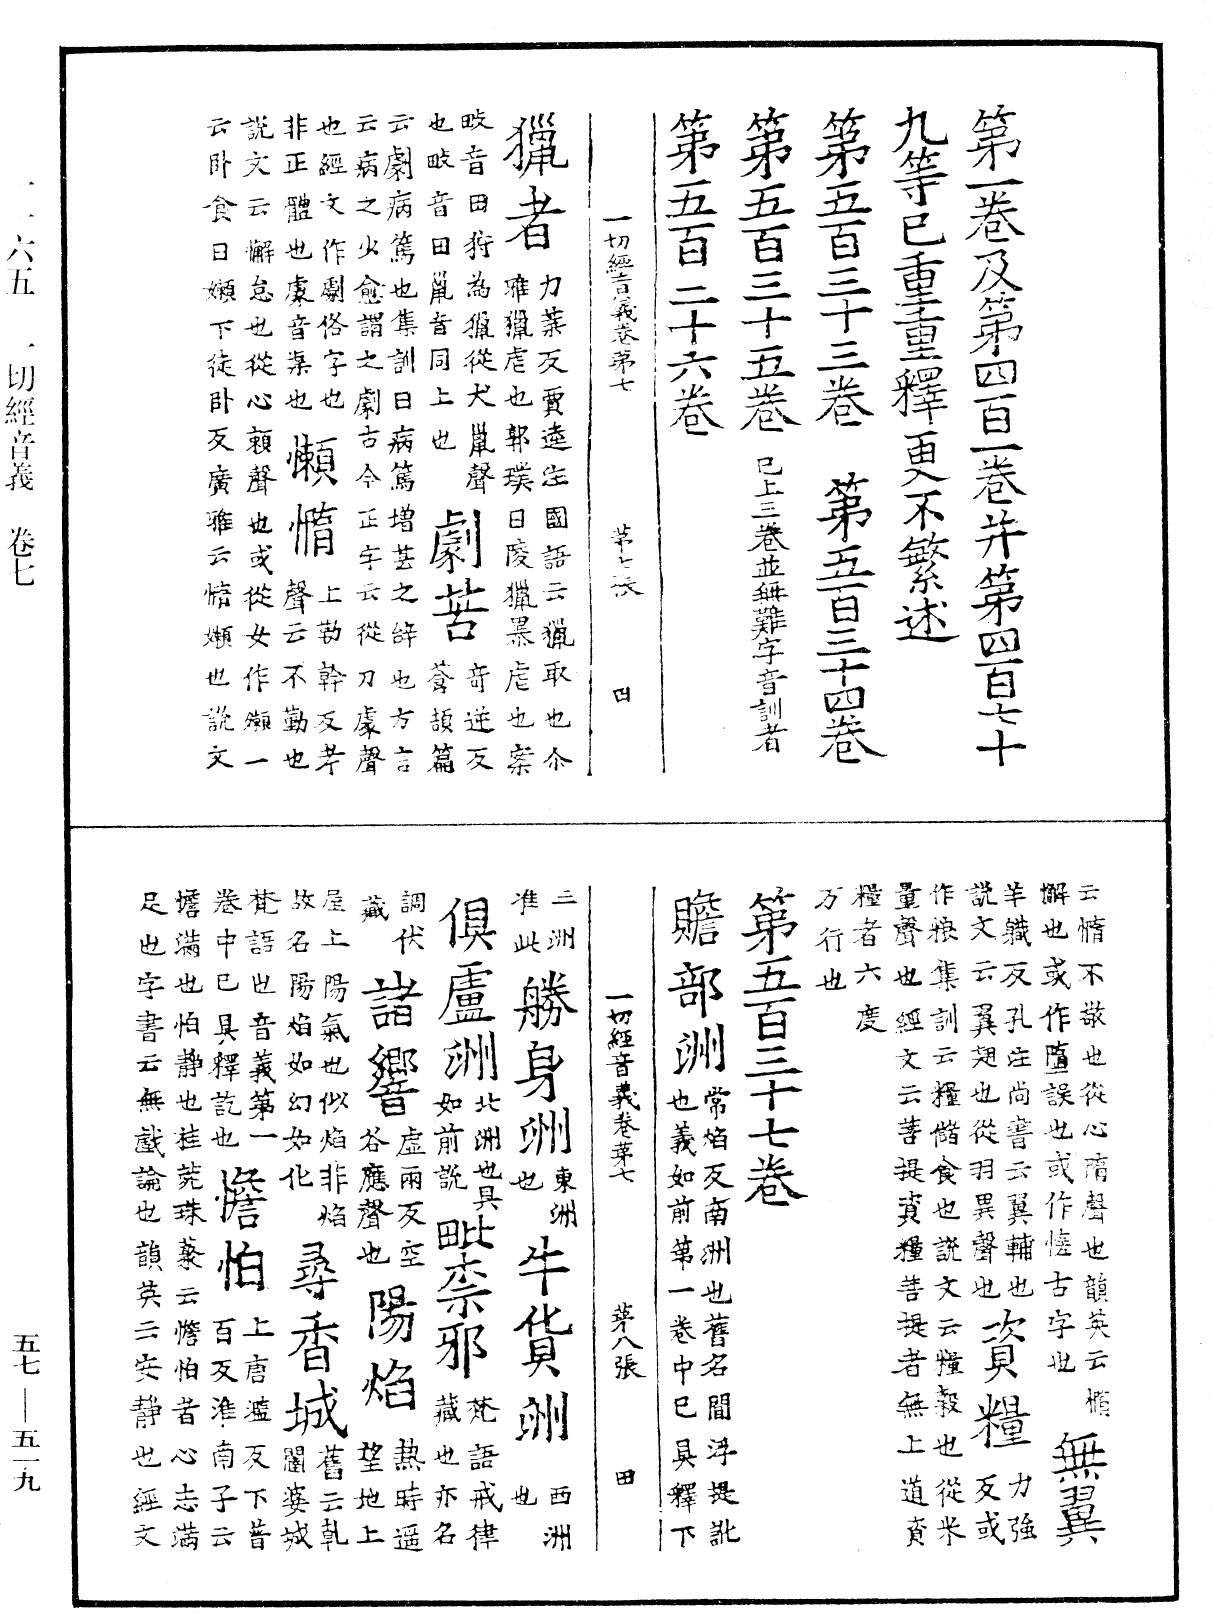 第一卷及第四百一卷并第四百七十
九等已重重釋更不繁述
第五百三十三卷　第五百三十四卷
第五百三十五卷　已上三卷並無難字音訓者
第五百二十六卷
一切經音義卷第七　第七張　田
獵者　力葉反賈逵注國語云獵取也尒
雅獵虐也郭璞曰陵獵暴虐也案
畋音田狩為獵從犬巤聲
也畋音田巤音同上也　劇苦　奇逆反
蒼頡篇
云劇病篤也集訓曰病篤增甚之辝也方言
云病之少愈謂之劇古今正字云從刀豦聲
也經文作劇俗字也
非正體也豦音渠也　懶惰　上勒幹反考
聲云不勤也
說文云懈怠也從心賴聲也或從女作嬾一
云卧食曰嬾下徒卧反廣雅云惰嬾也說文
云惰不敬也從心隋聲也韻英云惰
懈也或作墮誤也或作憜古字也　無翼
羊軄反孔注尚書云翼輔也
說文云翼翅也從羽異聲也　資糧　力強
反或
作粮集訓云糧儲食也說文云糧穀也從米
量聲也經文云菩提資糧菩提者無上道資
糧者六度
万行也
第五百三十七卷
贍部洲　常焰反南洲也舊名閻浮提訛
也義如前第一卷中已具釋下
一切經音義卷第七　第八張　田
三洲
准此　勝身洲　東洲
也　牛貨洲　西洲
也
俱盧洲　北洲也具
如前說　毗柰耶　梵語戒律
藏也亦名
調伏
藏　諸響　虛兩反空
谷應聲也　陽焰　熱時遥
望地上
屋上陽氣也似焰非焰
故名陽焰如幻如化　尋香城　舊云乹
闥婆城
梵語也音義第一
卷中已具釋訖也　憺怕　上唐濫反下普
百反淮南子云
憺滿也怕静也桂菀珠藂云憺怕者心志滿
足也字書云無戲論也韻英云安静也經文
一一六五　一切經音義　卷七
五七—五一九